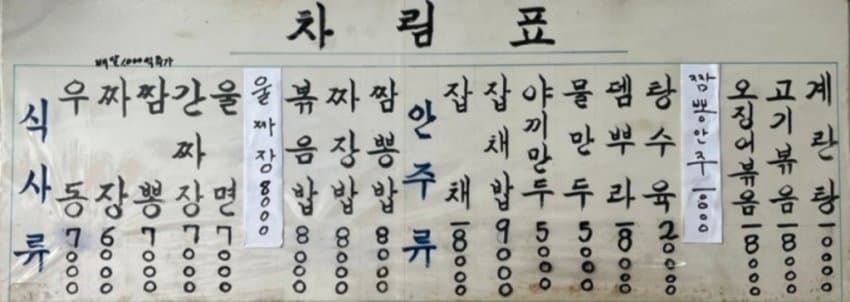 차림표
배달 1000씩 추가
식사류
우동 7000
짜장 6000
짬뽕 7000
간짜장 7000
울면 7000
울짜장 8000
볶음밥 8000
짜장밥 8000
짬뽕밥 8000
안주류
잡채 18000
잡채밥 9000
야끼만두 5000
물만두 5000
뎀뿌라 18000
탕수육 20000
짬뽕안주 10000
오징어볶음 18000
고기볶음 18000
계란탕 10000